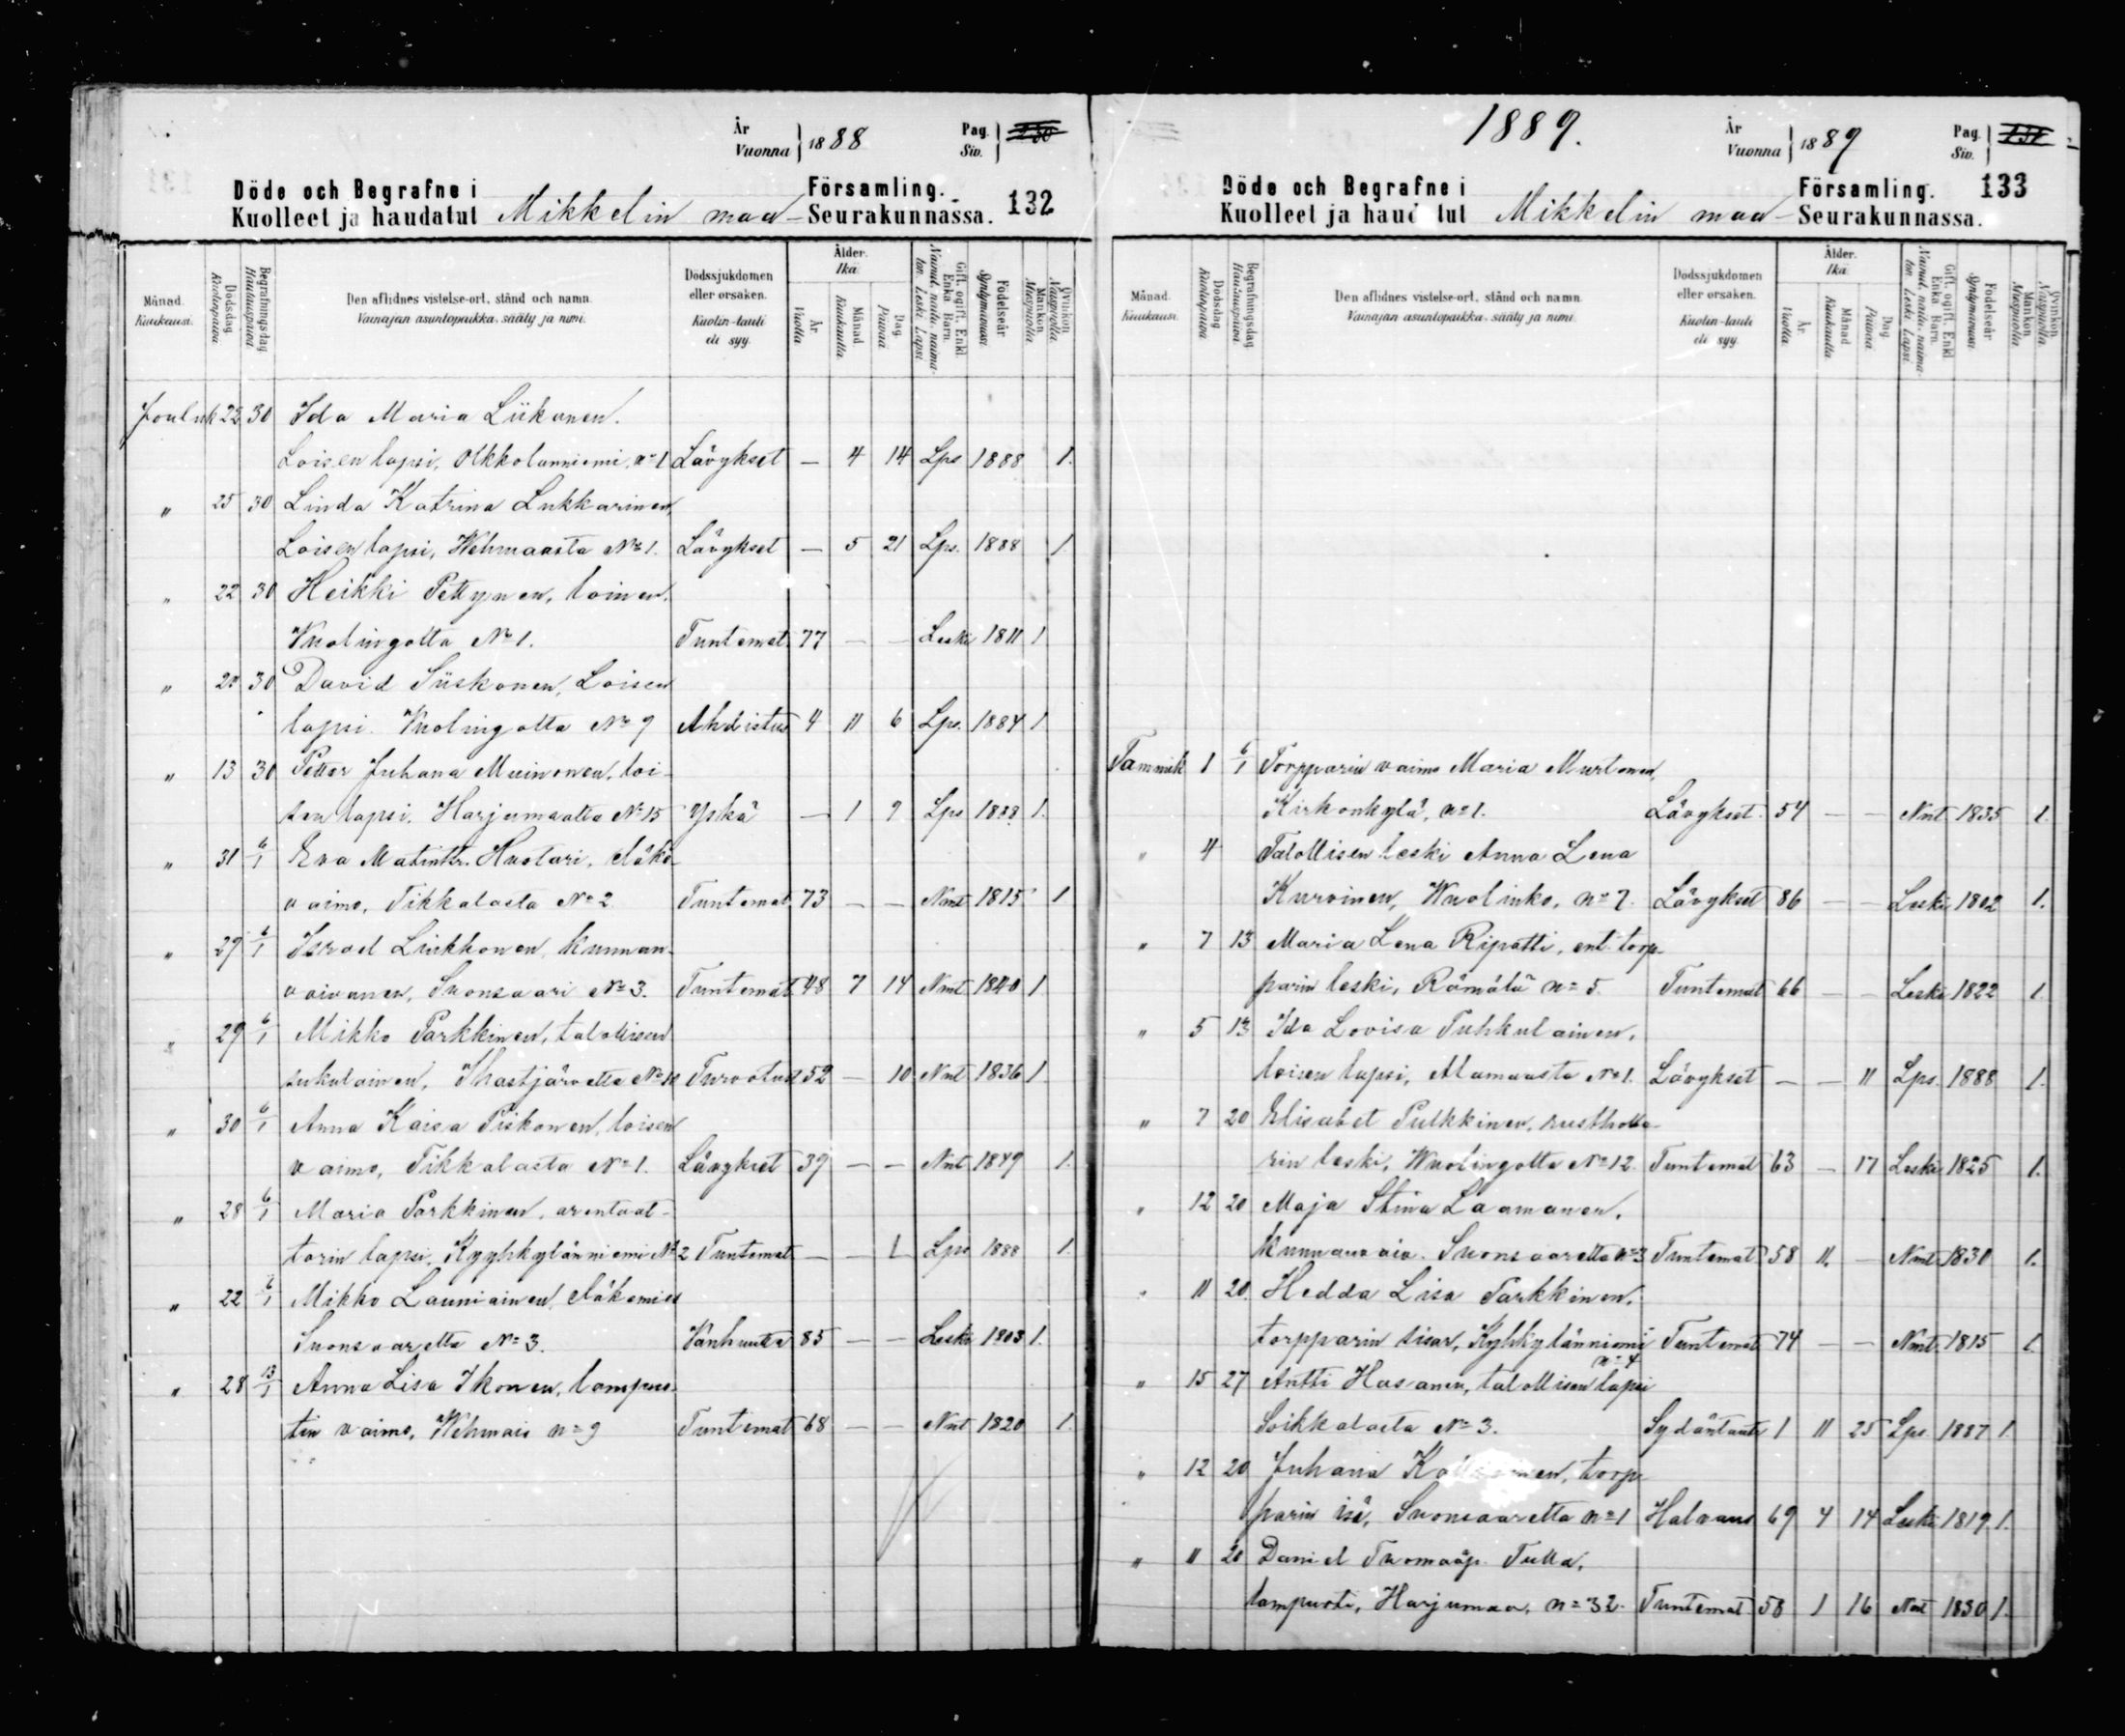 År
Vuonna } 1888 Pag. Siv. }
Döde och Begrafne i Församling.
Kuolleet ja haudatut Mikkelin maa- Seurakunnassa. 132
Månad. Kuukausi. Dödsdag Kuolinpäiwä. Begrafningsdag Hautauspäiwä. Den aflidnes vistelse-ort, stånd och namn. Vainajan asuntopaikka, sääty ja nimi. Dödssjukdomen eller orsaken. Kuolin-tauti eli syy. Ålder. Ikä. År Vuotta. Månad Kuukautta. Dag Päiwää. Gift, ogift, Enkl. Enka Barn. Nainut, naim. naimaton. Leski Lapsi. Födelseår Syntymävuosi. Mankön. Miespuolia. Qvinkön. Naispuolia.
Jouluk 22 30 Ida Maria Liikanen.
Loisen lapsi, Olkkolanniemi, n=1 Lävykset — 4 14 Lps 1888 1.
" 25 30 Linda Katrina Lukkarinen,
Loisen lapsi, Wehmaasta No 1. Lävykset — 5 21 Lps. 1888 1
" 22 30 Heikki Pettynen, loinen.
Wuolingotta No 1. Tuntemat. 77 — — Leski 1811 1
" 30 David Siiskonen, Loisen
lapsi. Wuolingotta No 9 Ahdistus 4 11 6 Lps. 1884 1
" 13 30 Petter Juhana Muinonen, loi-
sen lapsi. Harjumaalta No 15 Yskä — 1 9 Lps 1888. 1.
" 31 6/1 Eva Matintr. Huotari, eläkö-
vaimo, Tikkalasta No 2 Tuntemat. 73 — — Nmt 1815 1
" 29 6/1 Israel Liukkonen, kunnan-
vaivanen, Suonsaari No 3. Tuntemat. 48 7 14 Nmt 1840 1
" 29 6/1 Mikko Parkkinen, talollisen
sukulainen, Ihastjärvelta No 10 Turvotus 52 — 10 Nmt 1836 1.
" 30 6/1 Anna Kaisa Piskonen, loisen
vaimo, Tikkalasta No 1. Lävykset 39 — — Nnt 1849 1.
" 28 6/1 Maria Parkkinen, arentaat-
torin lapsi, Kyyhkylänniemi No 2 Tuntemat. — — 1 Lps 1888 1.
" 22 6/1 Mikko Launiainen, eläkemies
Suonsaarelta No 3. Vanhuutta 85 — — Leski 1803 1.
" 28 13/1 Anna Lisa Ikonen, lampuo-
tin vaimo, Wehmais n=9 Tuntemat 68 — — Nnt 1820 1.
1889.
År
Vuonna } 1889 Pag. Siv. }
Döde och Begrafne i Församling. 133
Kuolleet ja haudatut Mikkelin maa- Seurakunnassa.
Månad. Kuukausi. Dödsdag Kuolinpäiwä. Begrafningsdag Hautauspäiwä. Den aflidnes vistelse-ort, stånd och namn. Vainajan asuntopaikka, sääty ja nimi. Dödssjukdomen eller orsaken. Kuolin-tauti eli syy. Ålder. Ikä. År Vuotta. Månad Kuukautta. Dag Päiwää. Gift, ogift, Enkl. Enka Barn. Nainut, naim. naimaton. Leski Lapsi. Födelseår Syntymävuosi. Mankön. Miespuolia. Qvinkön. Naispuolia.
Tammik 1 6/1 Torpparin vaimo Maria Murtonen,
Kirkonkylä, n=1. Lävykset. 54 — — Nnt 1835 1.
" 4 Talollisen leski Anna Lena
Kurvinen, Wuolinko, n=7. Lävykset 86 — — Leski 1802 1.
" 7 13 Maria Lena Ripatti, ent. torp-
parin leski, Rämälä n=5. Tuntemat 66 — — Leski 1822 1.
" 5 13 Ida Lovisa Tuhkulainen,
loisen lapsi, Alamaasta No 1. Lävykset — — 11 Lps. 1888 1.
" 7 20 Elisabet Pulkkinen, rustholla-
rin leski, Wuolingotta No 12. Tuntemat 63 — 17 Leski 1825 1.
" 12 20 Maja Stina Laamanen,
kunnanvaiv. Suonsaarelta n=3 Tuntemat. 58 11. — Nmt 1830 1.
" 11 20. Hedda Lisa Parkkinen,
torpparin sisar, Kyhkylänniemi n=4 Tuntemat. 74 — — Nmt. 1815 1.
" 15 27 Antti Hasanen, talollisen lapsi
Soikkalasta No 3. Sydäntauti 1 11 25 Lps. 1887 1.
" 12 20 Juhana torp-
parin isä, Suonsaarelta n=1 Halvaus 69 4 14 Leski 1819 1.
" 11 20 Daniel Tuomaap. Tulla,
lampuoti, Harjumaa, n=32. Tuntemat 58 1 16 Nnt 1830 1.